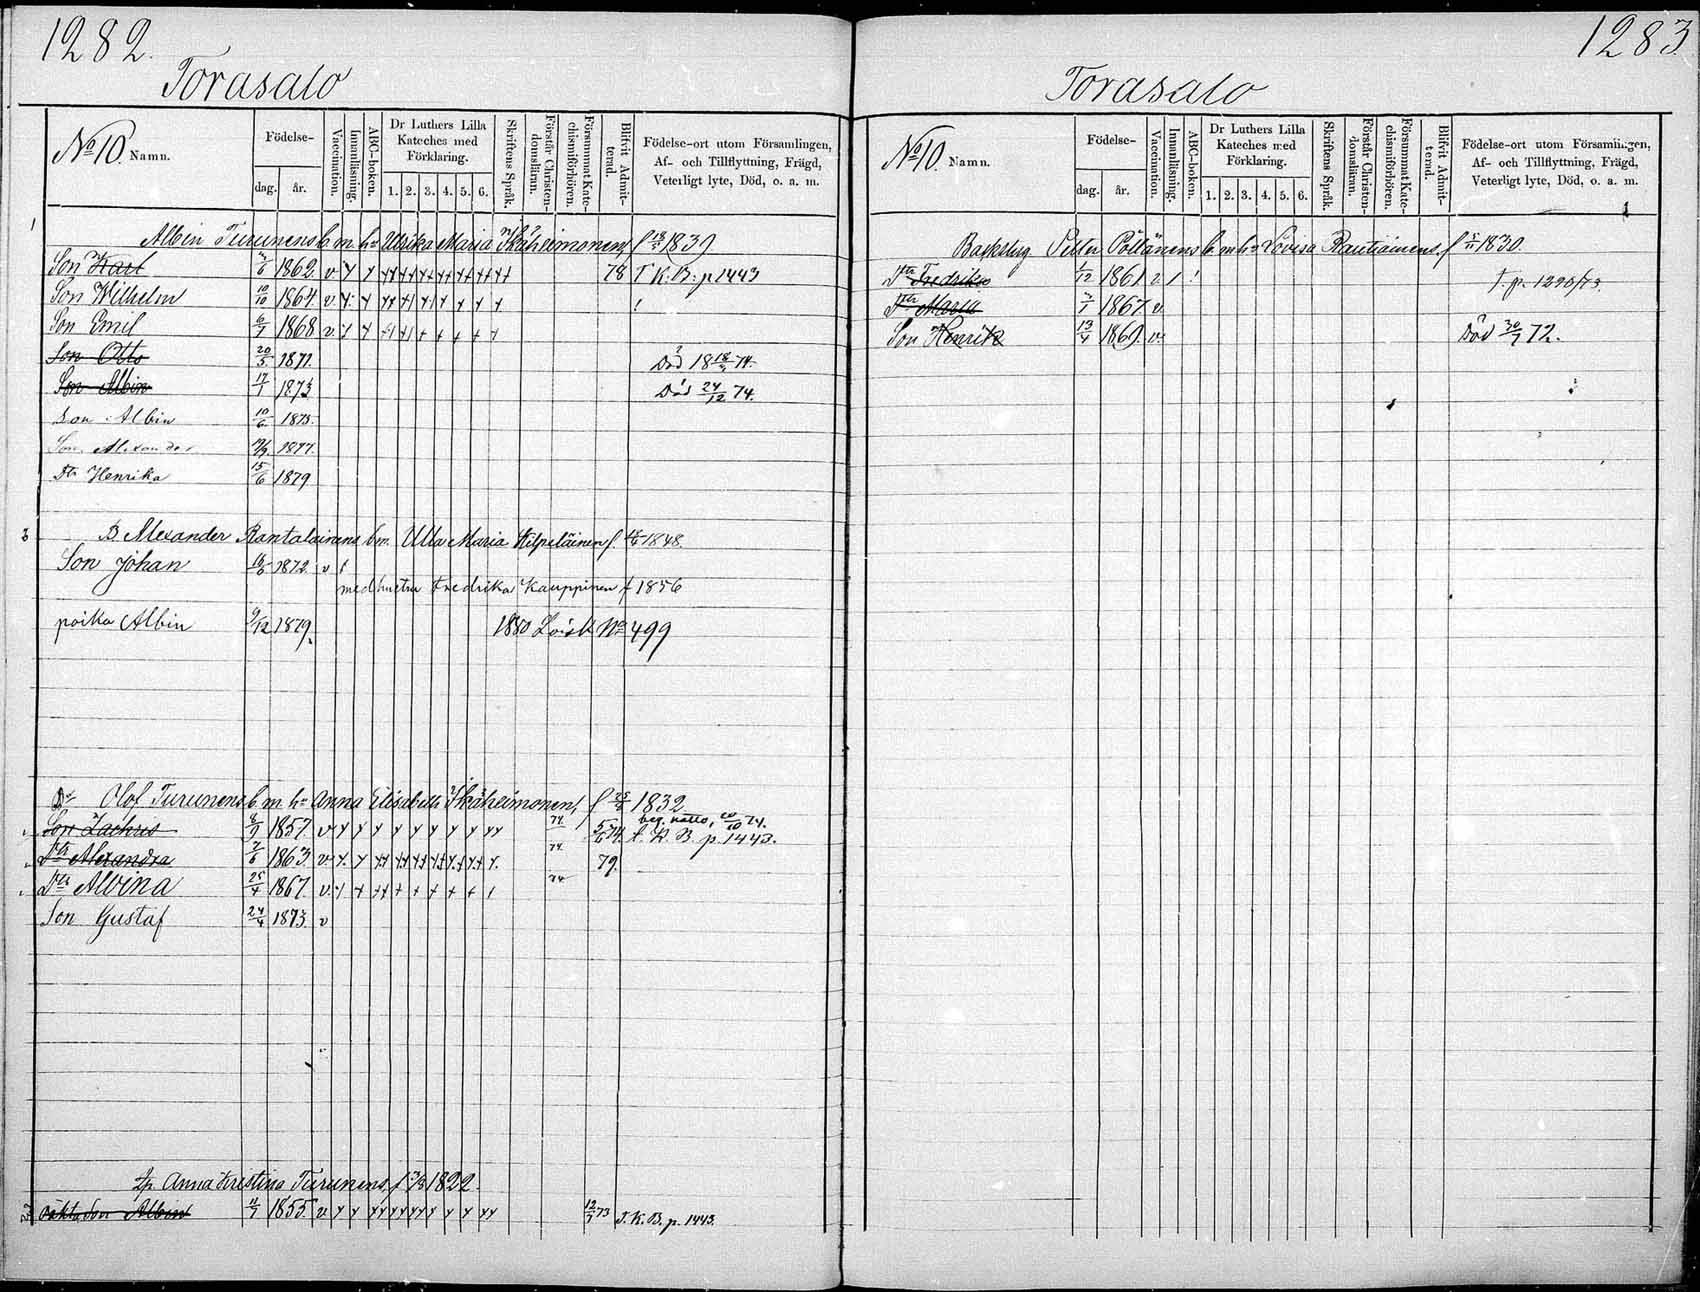 1282.
Torasalo
No 10. Namn.
Födelse-
dag. år.
Vaccination.
Innanläsning.
ABC-boken.
Dr Luthers Lilla Kateches med Förklaring.
1. 2. 3. 4. 5. 6.
Skriftens Språk.
Förstår Christendomsläran.
Försummat Katechismiförhören.
Blifvit Admitterad.
Födelse-ort utom Församlingen, Af- och Tillflyttning, Frägd, Veterligt lyte, Död, o. a. m.
1
Albin Turunens b. m. h. Ulrika Maria Ikäheimonen, f 1839
Son Karl 1862 v 78 T K. B: p 1443
Son Wilhelm 10/10 1864 v
Son Emil 6/7 1868 v
Son Otto 20/3 1871. Död 18 74.
Son Albin 17/1 1873 Död 24/12 74.
Son Albin 10/6 1875.
Son Alexander 1877.
Dtr Henrika 15/6 1879
B. Alexander Rantalainens b. m. Ulla Maria Hilpeläinen f. 1848.
Son Johan 16/6 1872 v
med hustru Fredrika Kauppinen f 1856
poika Albin 9/12 1879. 1880 No 499
Olof Turunens b. m. h. Anna Elisabeth Ikäheimonen, f 1832
Son Zachris 8/9 1857 v 74 beg. 20/10 74. t. K. B. p. 1443.
Dtr Alexandra 7/6 1863 v 74. 79.
Dtr Albina 25/4 1867. v 74
Son Gustaf 24/4 1873. v
Anna Kristina Turunens, f 1822.
oäkta son Albin 11/7 1855. v 12/7 73 T. K. B. p. 1443.
1283
Torasalo
No 10. Namn.
Födelse-
dag. år.
Vaccination.
Innanläsning.
ABC-boken.
Dr Luthers Lilla Kateches med Förklaring.
1. 2. 3. 4. 5. 6.
Skriftens Språk.
Förstår Christendomsläran.
Försummat Katechismiförhören.
Blifvit Admitterad.
Födelse-ort utom Församlingen, Af- och Tillflyttning, Frägd, Veterligt lyte, Död, o. a. m.
1
Backstug. Petter Pöllänens b. m. h. Lovisa Rautiainens. f 1830.
Dtr Fredrika 1/12 1861 v T. p. 1290/73
Dtr Maria 1867. v
Son Henrik 13/4 1869. v. Död 30/7 72.